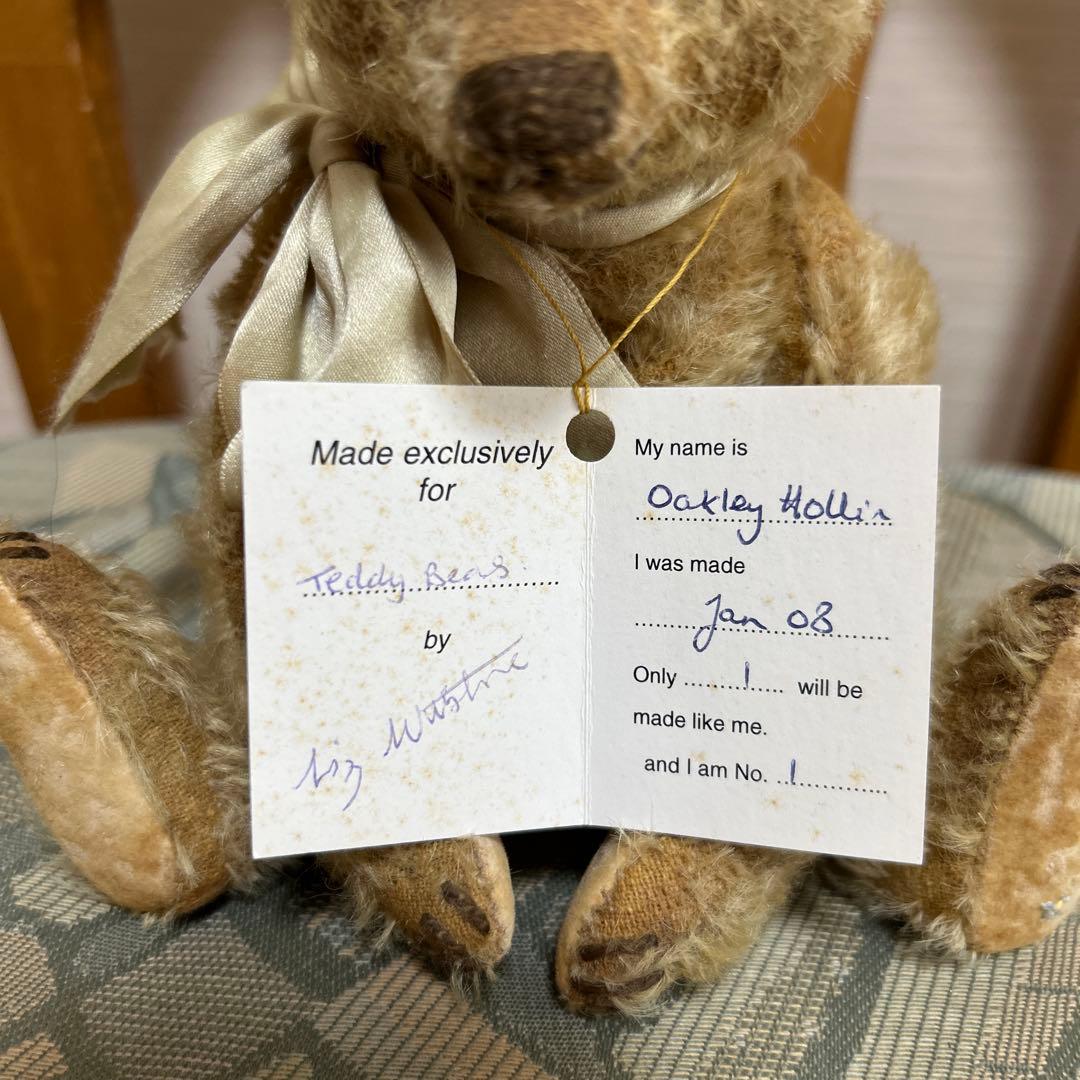 Made exclusively
for
Teddy Bears
by
Liz
My name is
Oakley Hollin
I was made
Jan 08
Only 1 will be
made like me.
and I am No. 1